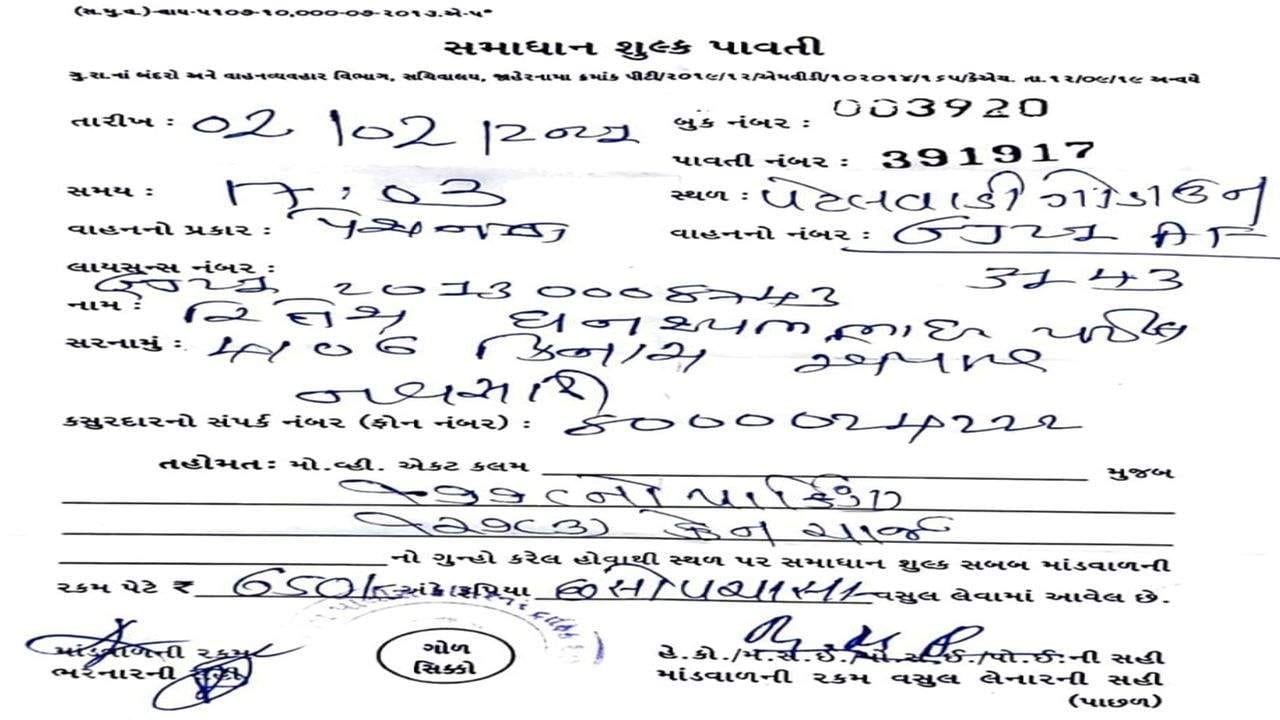 (સ.પુ.વ.)-વાય-૫૧૦૭-૧૦,૦૦૦-૦૭-૨૦૧૭.એ-૫*
સમાધાન શુલ્ક પાવતી
ગુ.રા.નાં બંદરો અને વાહનવ્યવહાર વિભાગ, સચિવાલય, જાહેરનામા ક્રમાંક પીટી/૨૦૧૯/૧૨/એમવીડી/૧૦૨૦૧૪/૧૬૫/કેએચ. તા.૧૨/૦૯/૧૯ અન્વયે
તારીખ : 02/02/
બુક નંબર : 003920
પાવતી નંબર : 391917
સમય : 17:03
સ્થળ : પટેલવાડી ગોડાઉન
વાહનનો પ્રકાર :
વાહનનો નંબર : GJ21 AF
3143
લાયસન્સ નંબર :
GJ21 20130008743
નામ : ઘનશ્યામભાઇ પટેલ
સરનામું :
નવસારી
કસુરદારનો સંપર્ક નંબર (ફોન નંબર) : 8000024222
તહોમત: મો.વ્હી. એકટ કલમ મુજબ
૧૭૭ નો પાર્કિંગ
૧૨૭(૩) ક્રેન ચાર્જ
નો ગુન્હો કરેલ હોવાથી સ્થળ પર સમાધાન શુલ્ક સબબ માંડવાળની
રકમ પેટે ₹ 650/- અંકે રૂપિયા છસો પચાસ વસુલ લેવામાં આવેલ છે.
માંડવાળની રકમ
ભરનારની સહી
ગોળ
સિક્કો
હે.કો./મ.સ.ઈ./પો.સ.ઈ./પો.ઈ.ની સહી
માંડવાળની રકમ વસુલ લેનારની સહી
(પાછળ)